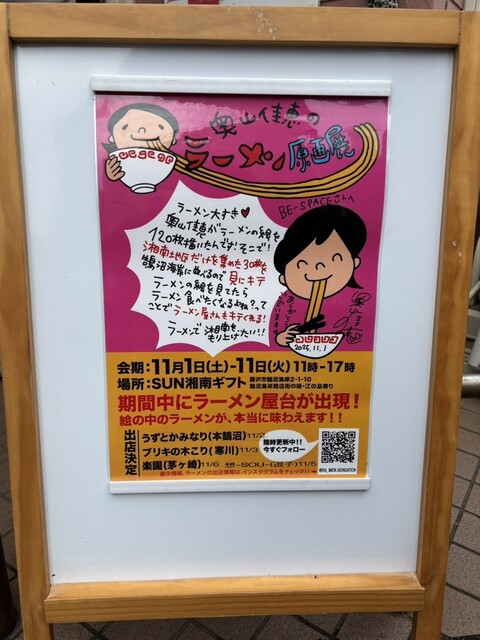 奥山佳恵の
ラーメン原画展
BE-SPACEさんへ
ラーメン大すき♥
奥山佳恵がラーメンの絵を
120枚描いたんです!そこで!
湘南地区だけを集めた30数を
鵠沼海岸に並べるので見にキテ
ラーメンの絵を見てたら
ラーメン食べたくなるよね?って
ことでラーメン屋さんもキテくれる!
ラーメンで湘南を
もり上げたい!!
ありがとう
ございます
2025.11.1
会期:11月1日(土)-11日(火)11時-17時
場所:SUN湘南ギフト
藤沢市鵠沼海岸2-1-10
鵠沼海岸商店街の端・江の島寄り
期間中にラーメン屋台が出現!
絵の中のラーメンが、本当に味わえます!!
出店決定
うずとかみなり(本鵠沼)11/2
ブリキの木こり(寒川)11/3
楽園(茅ヶ崎)11/6
-SOU-(逗子)11/5
随時更新中!!
今すぐフォロー
展示情報、ラーメンの出店情報は、インスタグラムをチェック!!→
@RA_MEN.GENGATEN